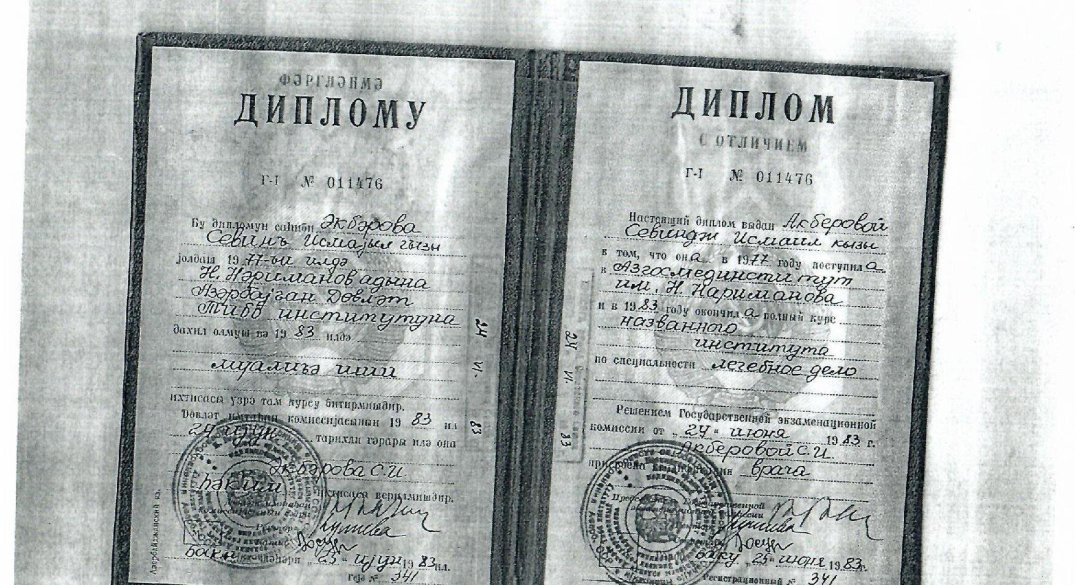 ФӘРГЛӘНМӘ
ДИПЛОМУ
Г-I № 011476
Бу дипломун саһиби Әкбәрова
Севинҹ Исмајыл гызы
јолдаш 1977-ҹи илдә
Н. Нәриманов адына
Азәрбајҹан Дөвләт
Тибб институтуна
дахил олмуш вә 1983 илдә
муалиҹә иши
ихтисасы үзрә там курсу битирмишдир.
Дөвләт имтаһан комиссијасынын 1983 ил
24 ијун
тарихли гәрары илә она
Әкбәрова С.И
һәким
ихтисасы верилмишдир.
Ректор
Бакы шәһәри 25 ијун 1983 ил.
Гејд № 341
Азербайджанский яз.
24 VI- 83
ДИПЛОМ
С ОТЛИЧИЕМ
Г-I № 011476
Настоящий диплом выдан Акберовой
Севиндж Исмаил кызы
в том, что она в 1977 году поступила
в Азгосмединститут
им. Н Нариманова
и в 1983 году окончила полный курс
названного
института
по специальности лечебное дело
Решением Государственной экзаменационной
комиссии от „24“ июня 1983 г.
Акберовой С.И
присвоена квалификация врача
Баку „25“ июня 1983.
Регистрационный № 341
24 VI. 83